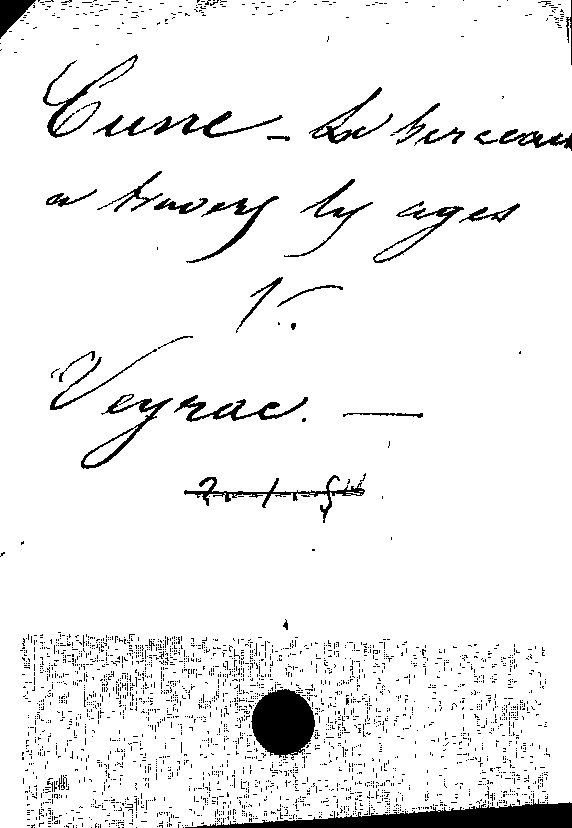 Cune - Le berceau
a travers les ages
V.
Veyrac. —